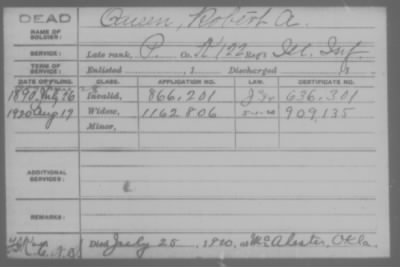 DEAD
NAME OF SOLDIER: Queen, Robert A.
SERVICE: Late rank, P. Co. K 122 Reg't Ill. Inf.
TERM OF SERVICE: Enlisted , 1 Discharged , 1
DATE OF FILING. CLASS. APPLICATION NO. LAW. CERTIFICATE NO.
1890, July 26 Invalid, 866,201 636,301
1920 Aug 19 Widow, 1162806 909,135
Minor,
ADDITIONAL SERVICES:
REMARKS:
Died July 25, 1920, at McAlester, Okla.